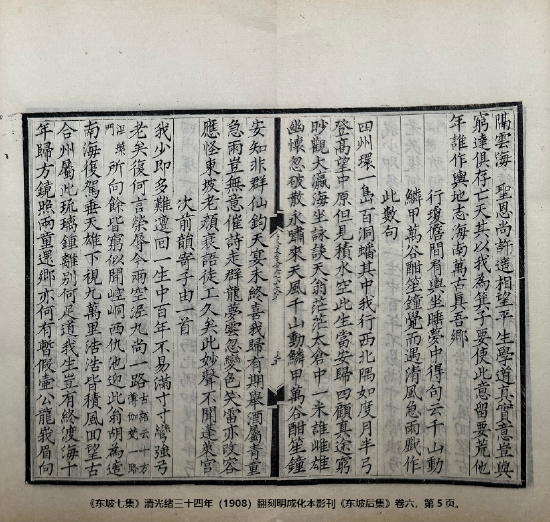 隔雲海　聖恩尚許遥相望平生學道真實意豈與
窮達俱存亡天其以我為箕子要使此意留要荒他
年誰作輿地志海南萬古真吾鄉
行瓊儋間肩輿坐睡夢中得句云千山動
鱗甲萬谷酣笙鐘覺而遇清風急雨戲作
此數句
四州環一島百洞蟠其中我行西北隅如度月半弓
登高望中原但見積水空此生當安歸四顧真途窮
眇觀大瀛海坐詠談天翁茫茫太倉中一米誰雌雄
幽懷忽破散永嘯來天風千山動鱗甲萬谷酣笙鐘
安知非群仙鈞天宴未終喜我歸有期舉酒屬青童
急雨豈無意催詩走群龍夢雲忽變色笑電亦改容
應怪東坡老顏衰語徒工久矣此妙聲不聞蓬萊宮
次前韻寄子由一首
我少即多難邅回一生中百年不易滿寸寸彎強弓
老矣復何言榮辱今兩空泥丸尚一路古語云十方薄伽梵一路
涅槃門所向餘皆窮似聞崆峒西仇池迎此翁胡為適
南海復駕垂天雄下視九萬里浩浩皆積風回望古
合州屬此琉璃鍾離別何足道我生豈有終渡海十
年歸方鏡照兩童還鄉亦何有暫假壺公龍峨眉向
《东坡七集》清光绪三十四年（1908）翻刻明成化本影刊《东坡后集》卷六，第5页。